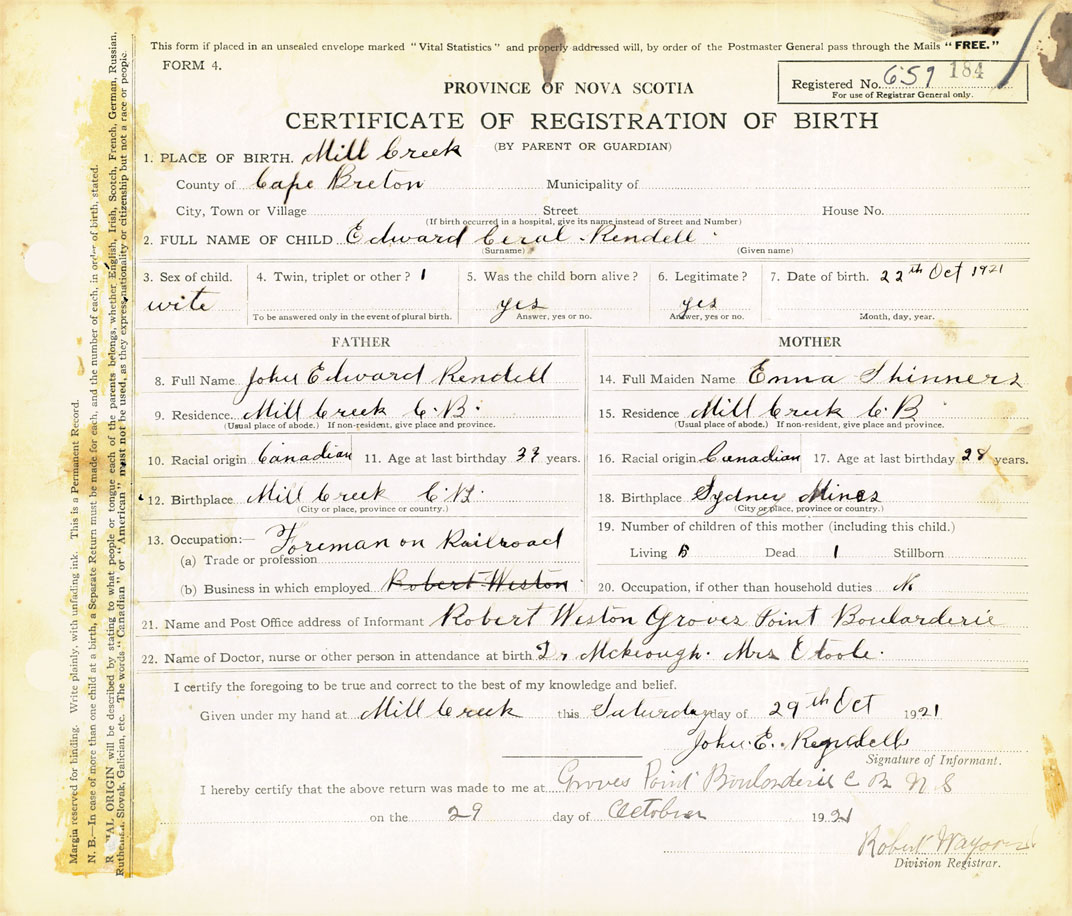 This form if placed in an unsealed envelope marked "Vital Statistics" and properly addressed will, by order of the Postmaster General pass through the Mails "FREE."
FORM 4.
Registered No. 659 184
For use of Registrar General only.
PROVINCE OF NOVA SCOTIA
CERTIFICATE OF REGISTRATION OF BIRTH
(BY PARENT OR GUARDIAN)
1. PLACE OF BIRTH. Mill Creek
County of Cape Breton Municipality of
City, Town or Village Street House No.
(If birth occurred in a hospital, give its name instead of Street and Number)
2. FULL NAME OF CHILD Edward Ceral Rendell
(Surname) (Given name)
3. Sex of child. 4. Twin, triplet or other? 1 5. Was the child born alive? 6. Legitimate? 7. Date of birth. 22th Oct 1921
wite yes yes
To be answered only in the event of plural birth. Answer, yes or no. Answer, yes or no. Month, day, year.
FATHER MOTHER
8. Full Name John Edward Rendell 14. Full Maiden Name Enna Skinners
9. Residence Mill Creek C.B. 15. Residence Mill Creek C B
(Usual place of abode.) If non-resident, give place and province. (Usual place of abode.) If non-resident, give place and province.
10. Racial origin Canadian 11. Age at last birthday 33 years. 16. Racial origin Canadian 17. Age at last birthday 28 years.
12. Birthplace Mill Creek C.B. 18. Birthplace Sydney Mines
(City or place, province or country.) (City or place, province or country.)
13. Occupation:— Foreman on Railroad 19. Number of children of this mother (including this child.)
(a) Trade or profession Living Dead 1 Stillborn
(b) Business in which employed Robert Weston 20. Occupation, if other than household duties No
21. Name and Post Office address of Informant Robert Weston Groves Point Boularderie
22. Name of Doctor, nurse or other person in attendance at birth Dr McKeough. Mrs Etoole.
I certify the foregoing to be true and correct to the best of my knowledge and belief.
Given under my hand at Mill Creek this Saturday day of 29th Oct 1921
John E. Rendell
Signature of Informant.
I hereby certify that the above return was made to me at Groves Point Boularderie C B N S
on the 29 day of October 1921
Robert
Division Registrar.
Margin reserved for binding. Write plainly, with unfading ink. This is a Permanent Record.
N. B.—In case of more than one child at a birth, a Separate Return must be made for each, and the number of each, in order of birth, stated.
ORIGIN will be described by stating to what people or tongue each of the parents belongs, whether English, Irish, Scotch, French, German, Russian,
Slovak, Galician, etc. The words "Canadian" or "American" must not be used, as they express nationality or citizenship but not a race or people.